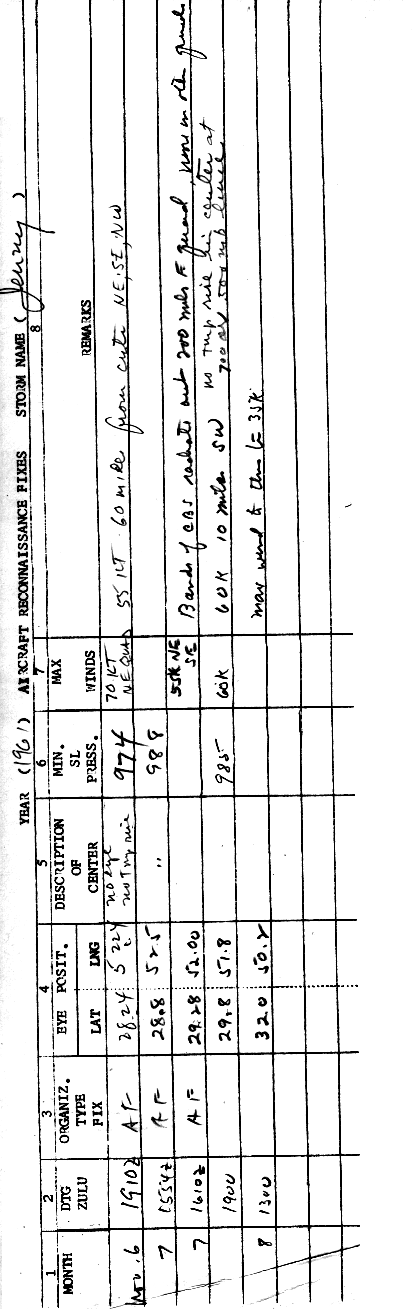 YEAR (1961) AIRCRAFT RECONNAISSANCE FIXES STORM NAME (Jenny)
1 2 3 4 5 6 7 8
MONTH DTG ZULU ORGANIZ. TYPE FIX EYE POSIT. LAT LNG DESCRIPTION OF CENTER MIN. SL PRESS. MAX WINDS REMARKS
Nov. 6 1910Z AF 28.24 52 24 no eye no Tmp rise 974 70 KT NE QUAD 55 KT 60 MILES from cntr NE, SE, NW
7 1534Z AF 28.8 52.5 " 988
7 1610Z AF 29.28 52.00 55K NE SE Bands of CBS radiate out 200 miles E quad, none in other quads
1900 29.8 51.8 985 60K 60K 10 miles SW no Tmp rise in center at 700 or 500 mb
8 1300 32.0 50.2 max wind 35K